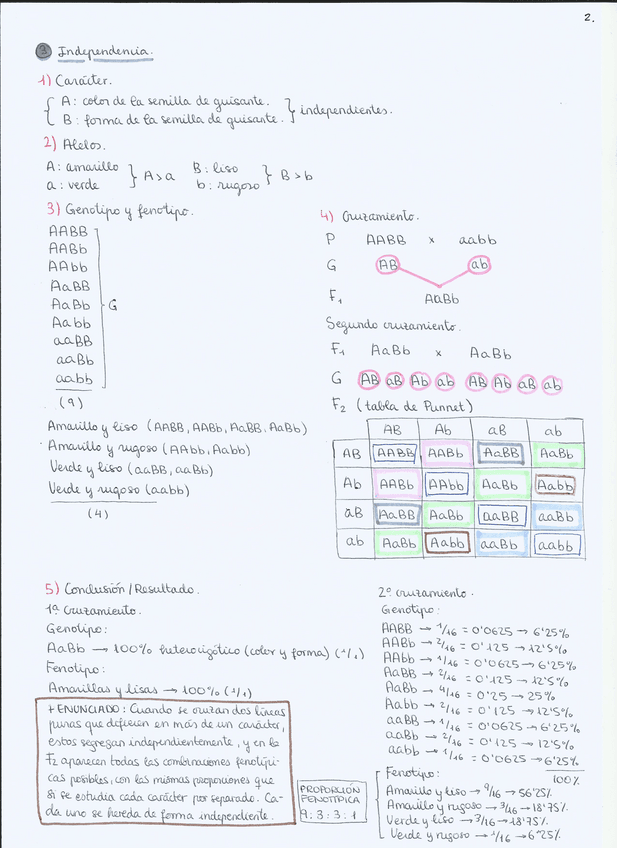 2.
3 Independencia.
1) Carácter.
A: color de la semilla de guisante.
B: forma de la semilla de guisante.
independientes.
2) Alelos.
A: amarillo
a: verde
A>a
B: liso
b: rugoso
B>b
3) Genotipo y fenotipo.
AABB
AABb
AAbb
AaBB
AaBb
Aabb
aaBB
aaBb
aabb
G
(9)
Amarillo y liso (AABB, AABb, AaBB, AaBb)
Amarillo y rugoso (AAbb, Aabb)
Verde y liso (aaBB, aaBb)
Verde y rugoso (aabb)
(4)
4) Cruzamiento.
P AABB x aabb
G AB ab
F1 AaBb
Segundo cruzamiento.
F1 AaBb x AaBb
G AB aB Ab ab AB Ab aB ab
F2 (tabla de Punnet)
AB Ab aB ab
AB AABB AABb AaBB AaBb
Ab AABb AAbb AaBb Aabb
aB AaBB AaBb aaBB aaBb
ab AaBb Aabb aaBb aabb
5) Conclusión/Resultado.
1º Cruzamiento.
Genotipo:
AaBb → 100% heterocigótico (color y forma) (1/1)
Fenotipo:
Amarillas y lisas → 100% (1/1)
+ ENUNCIADO: Cuando se cruzan dos líneas
puras que difieren en más de un carácter,
estos segregan independientemente, y en la
F2 aparecen todas las combinaciones fenotípi-
cas posibles, con las mismas proporciones que
si se estudia cada carácter por separado. Ca-
da uno se hereda de forma independiente.
PROPORCIÓN
FENOTÍPICA
9:3:3:1
2º cruzamiento.
Genotipo:
AABB → 1/16 = 0'0625 → 6'25%
AABb → 2/16 = 0'125 → 12'5%
AAbb → 1/16 = 0'0625 → 6'25%
AaBB → 2/16 = 0'125 → 12'5%
AaBb → 4/16 = 0'25 → 25%
Aabb → 2/16 = 0'125 → 12'5%
aaBB → 1/16 = 0'0625 → 6'25%
aaBb → 2/16 = 0'125 → 12'5%
aabb → 1/16 = 0'0625 → 6'25%
100%
Fenotipo:
Amarillo y liso → 9/16 → 56'25%
Amarillo y rugoso → 3/16 → 18'75%
Verde y liso → 3/16 → 18'75%
Verde y rugoso → 1/16 → 6'25%